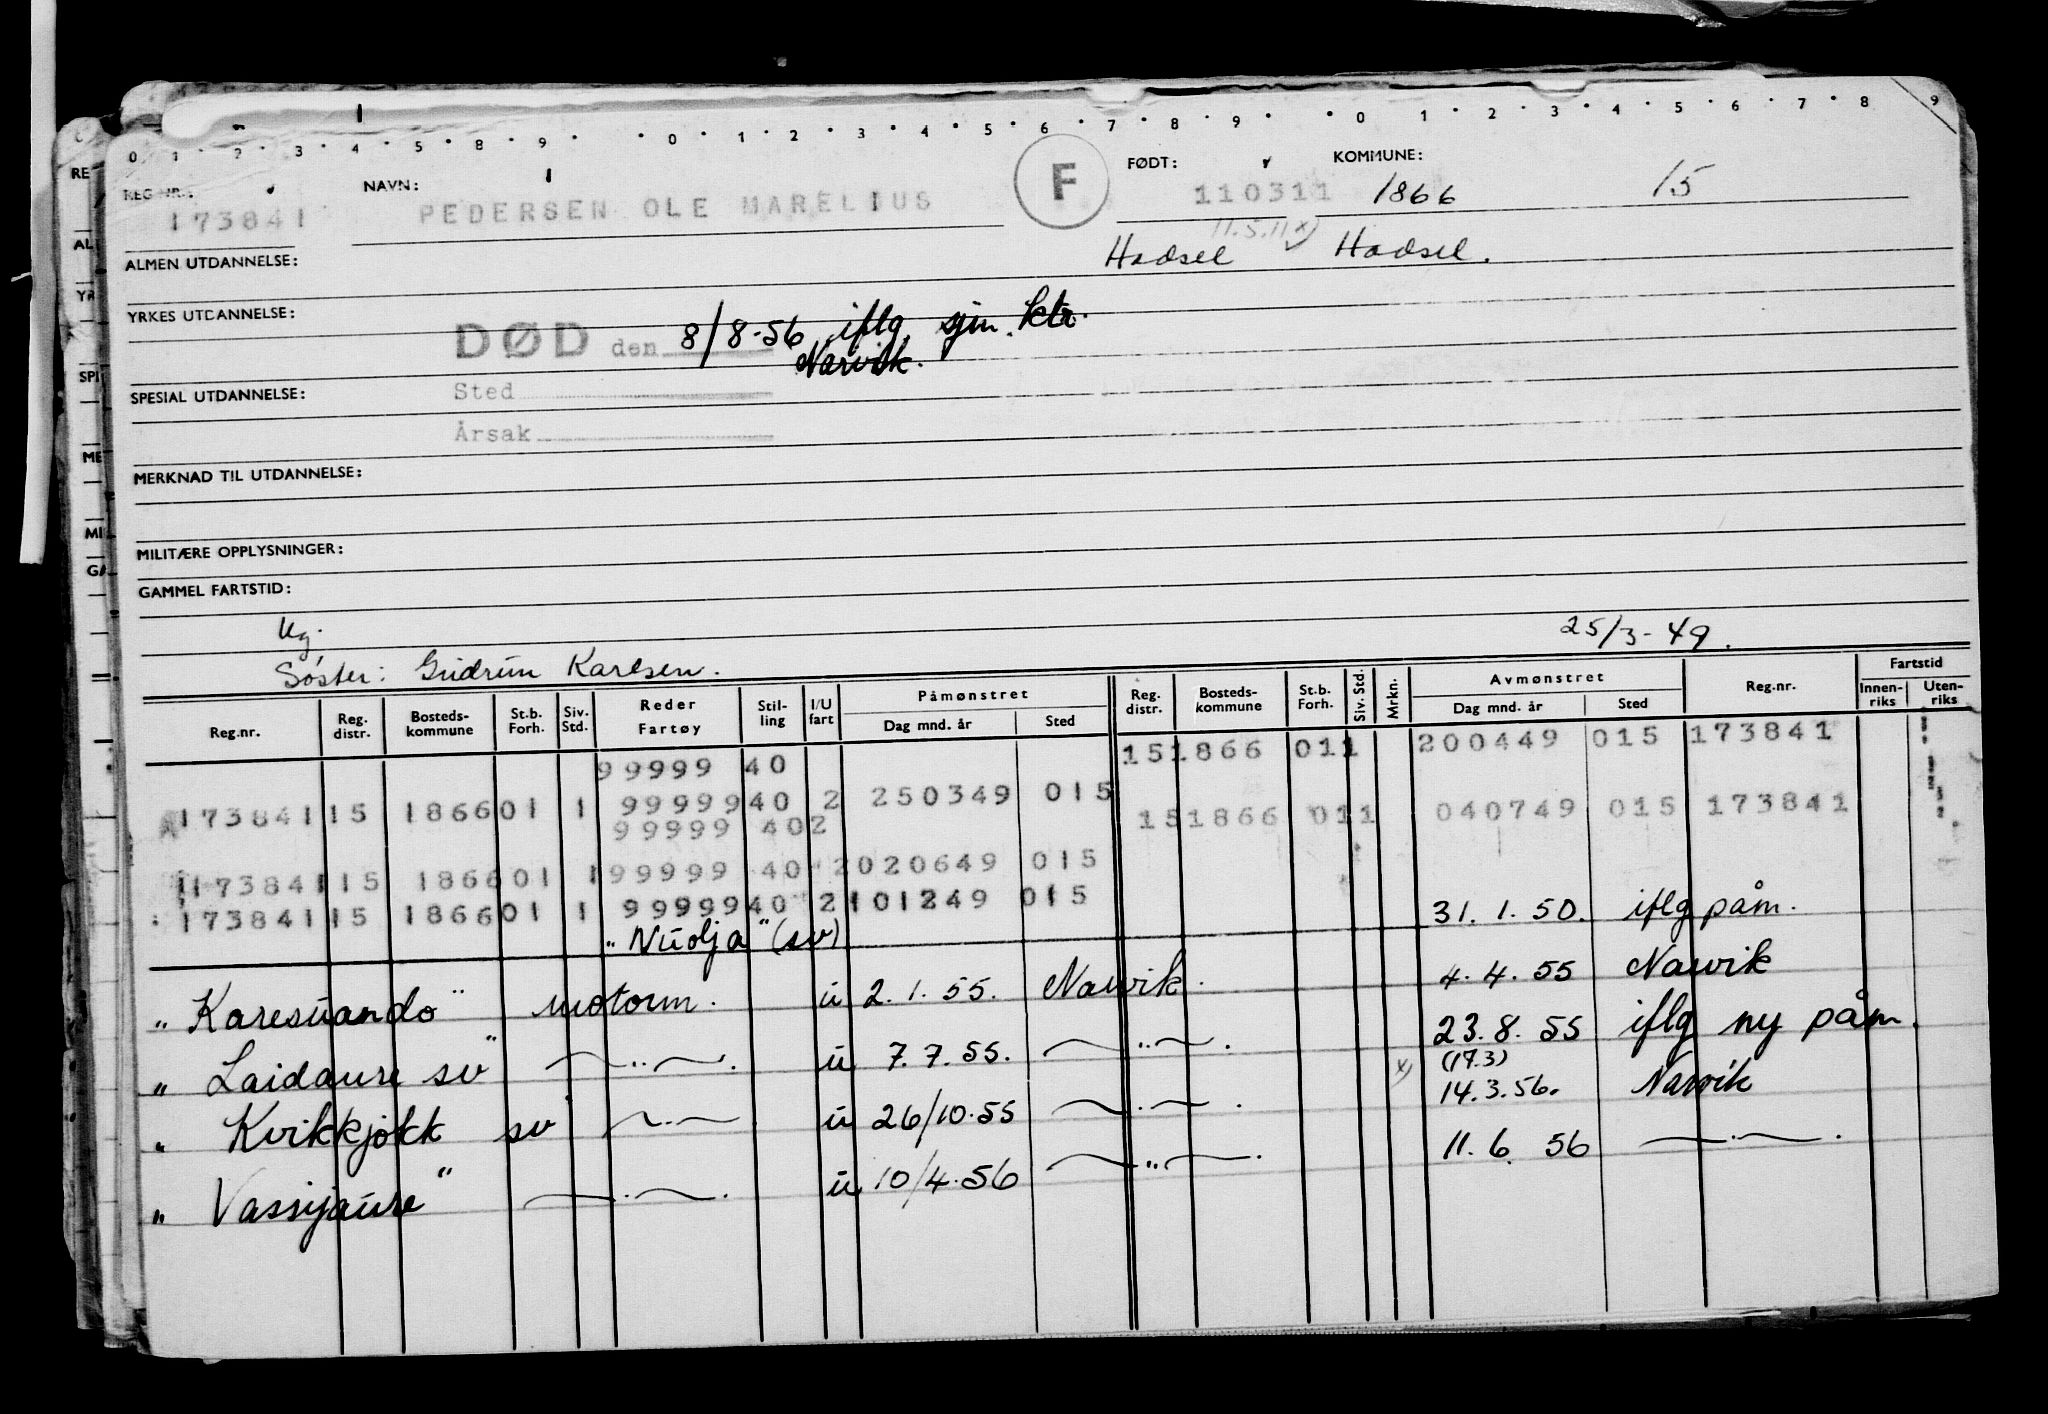 0 1 2 3 4 5 8 9 0 1 2 3 4 5 6 7 8 9 0 1 2 3 4 5 6 7 8 9
REG NR.: NAVN: F FØDT: KOMMUNE:
173841 PEDERSEN OLE MARELIUS 110311 1866 15
11.5.11 x)
ALMEN UTDANNELSE: Hadsel Hadsel.
YRKES UTDANNELSE:
DØD den 8/8-56 iflg. sjm. ktr.
Narvik.
SPESIAL UTDANNELSE: Sted
Årsak
MERKNAD TIL UTDANNELSE:
MILITÆRE OPPLYSNINGER:
GAMMEL FARTSTID:
Ug. 25/3-49.
Søster: Gudrun Karlsen.
Reg.nr. Reg. distr. Bosteds-kommune St.b. Forh. Siv. Std. Reder Fartøy Stil-ling I/U fart Påmønstret Dag mnd. år Sted Reg. distr. Bosteds-kommune St.b. Forh. Siv. Std. Mrkn. Avmønstret Dag mnd. år Sted Reg.nr. Fartstid Innen-riks Uten-riks
99999 40 15 1866 01 1 200449 015 173841
173841 15 1866 01 1 99999 40 2 250349 015
99999 40 2 15 1866 01 1 040749 015 173841
173841 15 1866 01 1 99999 40 2 020649 015
173841 15 1866 01 1 99999 40 2 101249 015 31.1.50. iflg påm.
"Nuolja" (sv)
"Karesuando" motorm. u 2.1.55. Narvik. 4.4.55 Narvik
"Laidaure sv" —"—. u 7.7.55. —"—. 23.8.55 iflg ny påm.
(17.3)
"Kvikkjokk sv" —"— u 26/10-55 —"—. x) 14.3.56. Narvik
"Vassijaure" —"—. u 10/4-56 —"—. 11.6.56 —"—.